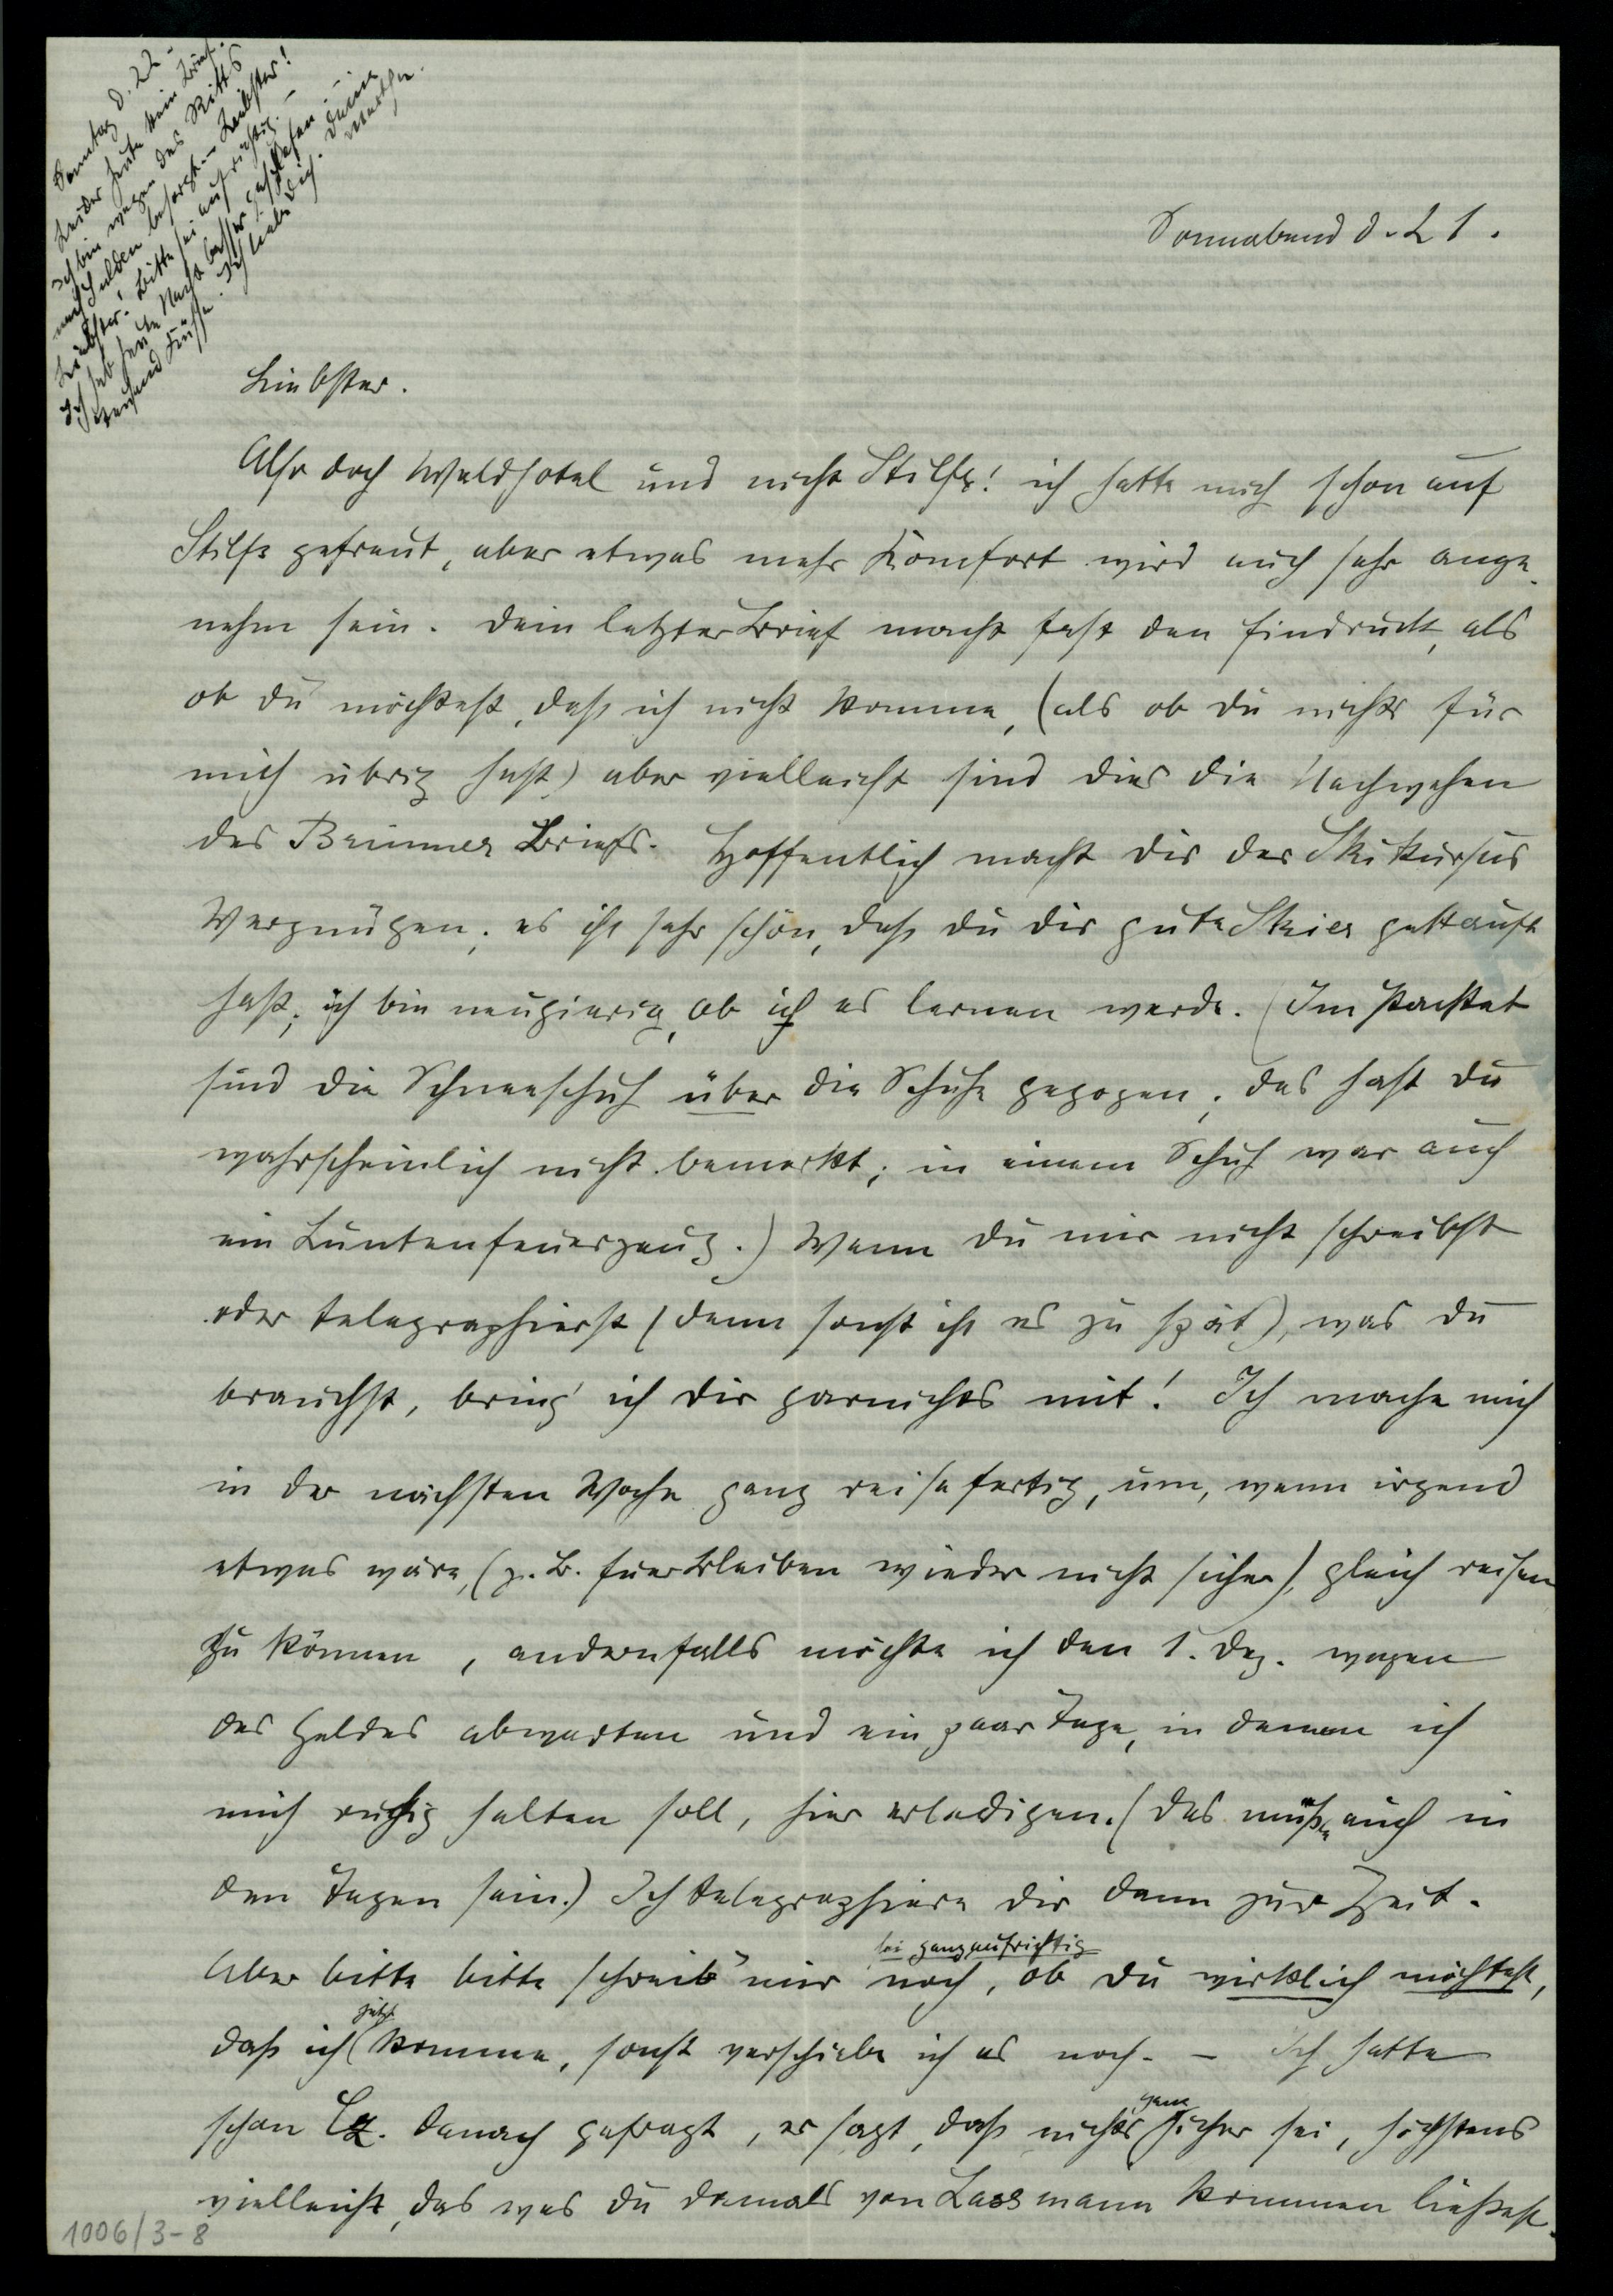 Sonntag d. 22.
Leider heute kein Brief.
Ich bin wegen des Ritts
nach Sulden besorgt. – Liebster!
Liebster! Bitte sei aufrichtig. –
Ich hab heute Nacht besser geschlafen. –
Tausend Küsse. Ich liebe Dich. Deine
Marthe.
Sonnabend d. 21.
Liebster.
Also doch Waldhotel und nicht Stilfs! ich hatte mich schon auf
Stilfs gefreut, aber etwas mehr Komfort wird auch sehr ange-
nehm sein. Dein letzter Brief macht fast den Eindruck, als
ob du möchtest, dass ich nicht komme, (als ob du nichts für
mich übrig hast) aber vielleicht sind dies die Nachwehen
des Brünner Briefs. Hoffentlich macht dir der Skikursus
Vergnügen; es ist sehr schön, dass du dir gute Skier gekauft
hast; ich bin neugierig, ob ich es lernen werde. (Im Packet
sind die Schneeschuh über die Schuhe gezogen; das hast du
wahrscheinlich nicht bemerkt; in einem Schuh war auch
ein Luntenfeuerzeug.) Wenn du mir nicht schreibst
oder telegraphierst (denn sonst ist es zu spät), was du
brauchst, bring' ich dir garnichts mit! Ich mache mich
in der nächsten Woche ganz reisefertig, um, wenn irgend
etwas wäre, (z. B. Euer Bleiben wieder nicht sicher), gleich reisen
zu können, andernfalls möchte ich den 1. Dez. wegen
des Geldes abwarten und ein paar Tage, in denen ich
mich ruhig halten soll, hier erledigen. (Das müsste auch in
den Tagen sein.) Ich telegraphiere dir dann zur Zeit.
sei ganz aufrichtig
Aber bitte bitte schreib mir noch, ob du wirklich möchtest,
jetzt
dass ich komme, sonst verschiebe ich es noch. – Ich hatte
ganz
schon danach gefragt, er sagt, dass nichts sicher sei, höchstens
vielleicht, das was du damals von Lassmann kommen liessest.
1006/3-8